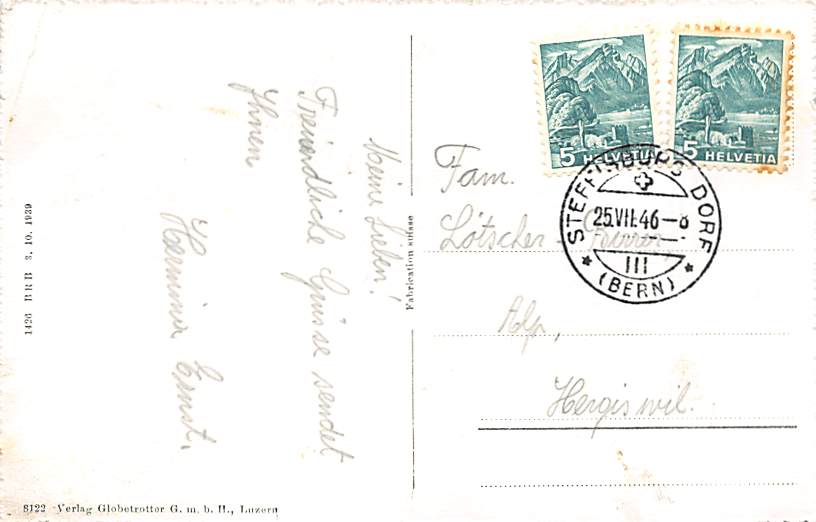 Meine Lieben!
Freundliche Grüsse sendet
Ihnen
Ernst.
Fam.
Lötscher - Furrer,
Alp,
Hergiswil.
5 HELVETIA
5 HELVETIA
DORF
25.VII.46-8
III
(BERN)
Fabrication suisse
1426 BRB 3. 10. 1939
8122 Verlag Globetrotter G. m. b. H., Luzern